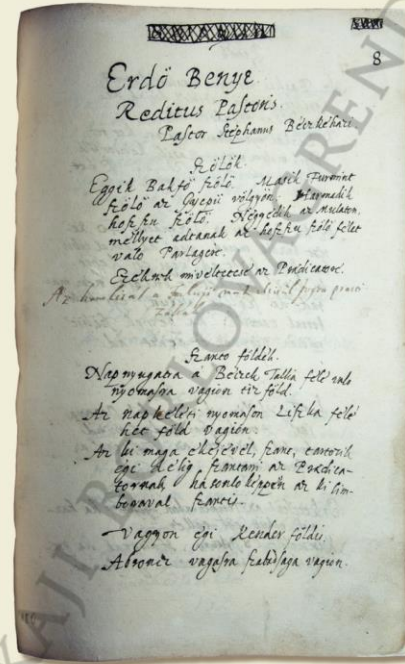 8
Erdö Benye
Reditus Pastoris.
Pastor Stephanus Béczkéházi
Szölök
Eggik Bakfö szölö. Masik Furmint
szölö az Gyepü völgyön. Harmadik
hoszszu szölö. Negyedik az Mulaton,
mellyet adtanak az hoszszu szölö felet
valo Parlagert.
Ezeknek miveltetése az Prædicatoré.
Az
Szanto földek.
Napnyugatra a Bérczek Tallia felé valo
nyomasra vagion tiz föld.
Az napkeleti nyomason Liszka felé
hét föld vagion.
Az ki maga ekéjével, szant, tartozik
egi szantani az Prædica-
tornak, hasonlo képpen az ki
szantis.
Vagyon egi Kender földi.
Abroncz vagasra szabadsaga vagion.